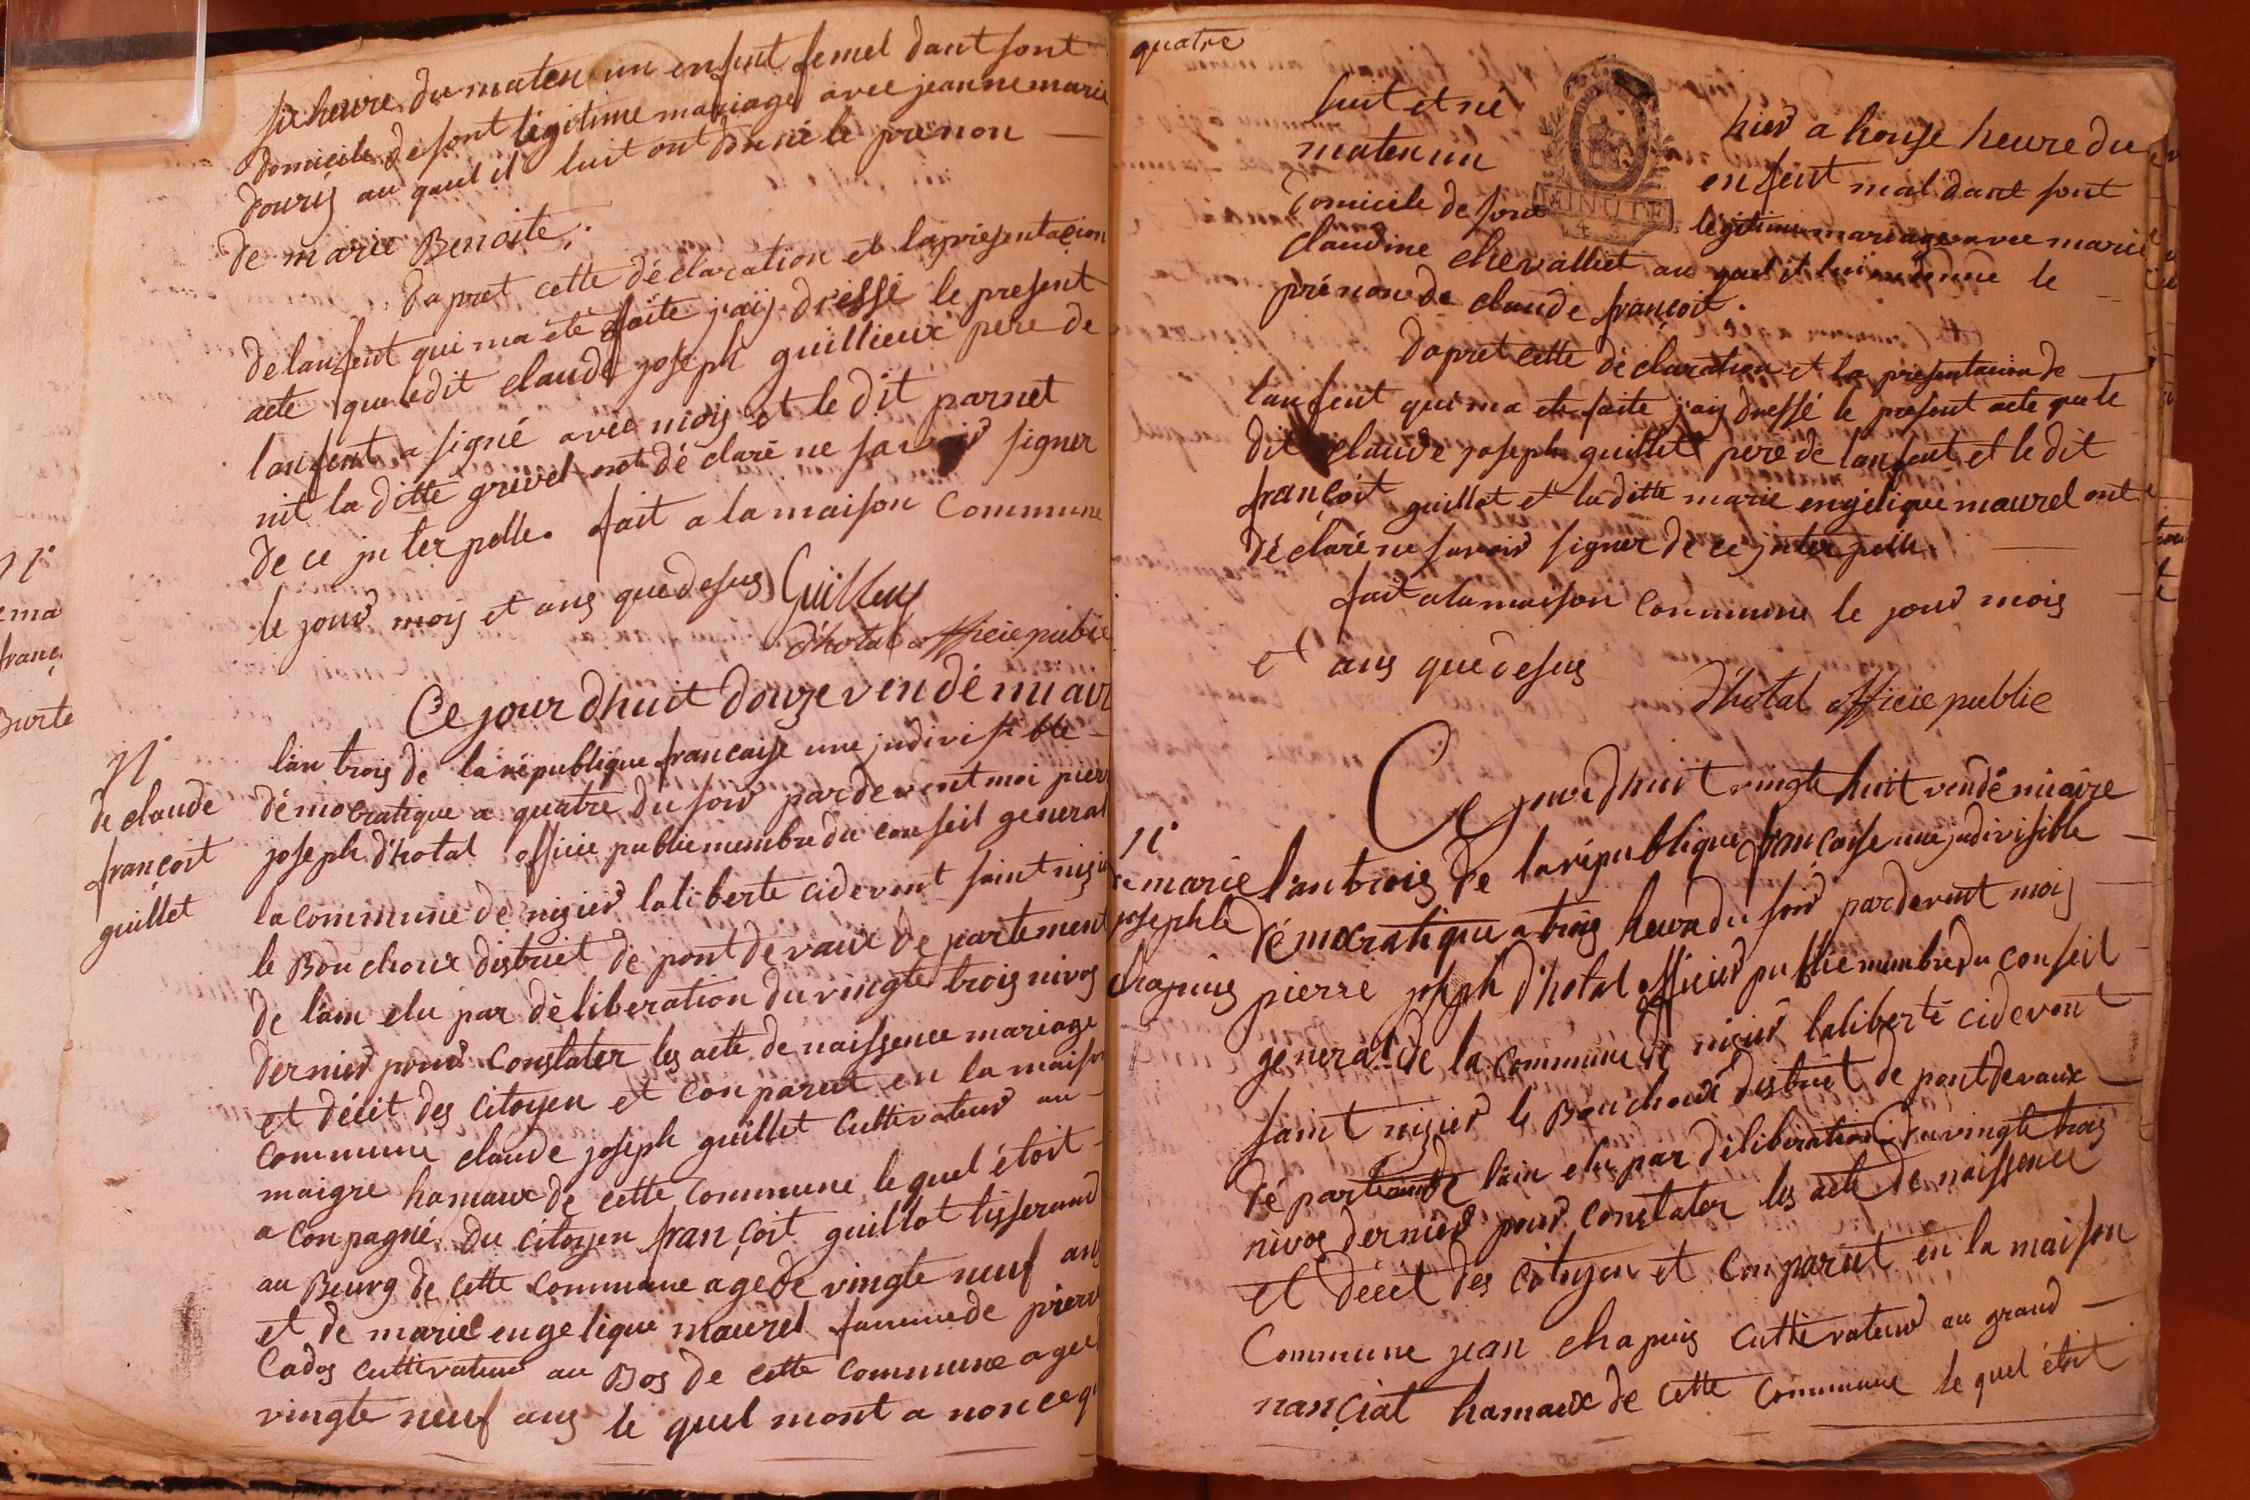 six heure du maten un enfent femel dant sont
domicile de sont légitime mariage avec jeanne marie
douris au quel il luit ont donné le prenon
de marie Benoite.
dapret cette déclaration et la présentacion
de lanfent qui ma été faite jaij dressé le present
acte que ledit claude joseph guillieux pere de
lanfent a signé avec mois et le dit parnet
nit la ditte grevel ont déclaré ne savoir signer
de ce jnterpelle. fait a la maison commune
le jour mois et ans que desus Guilleux
d'hotal officie public
N°
de claude
françoit
guillet
Ce jour dhuit douze vendémiair
lan trois de la république francaise une jndivisible
démocratique a quatre du soir pardevent moi pierr
joseph d'hotal officie public membre du conseil general
la commune de nizier laliberte cidevent saint nizi
le Bouchoux distrit de pont de vaux département
de lain elu par déliberation du vingte trois nivos
dernier pour constater les acte de naissence mariage
et décit des citoyen et conparut en la maison
commune claude joseph guillet cultivateur au
maigre hamaux de cette commune le quel étoit
aconpagné du citoyen françoit guillot tisserand
au Beurg de cette commune age de vingte neuf ans
et de marie engelique maurel famme de pierre
Cados cultivateur au Bos de cette commune agee
vingte neuf ans le quel mont a nonce q
quatre
luit et né hier a honse heure du
maten un enfent mal dant sont
domicile de sont légitime mariage avec marie
claudine chevalliet au quel il lui a donné le
prénon de claude françoit.
MINUTE
dapret cette déclaration et la présentacion de
lanfent qui ma eté faite jaij dressé le present acte que le
dit claude joseph guillet pere de lanfent et le dit
françoit guillot et la ditte marie engelique maurel ont
déclaré ne savoir signer de ce jnterpelle
fait a la maison commune le jour mois
et ans que desus
d'hotal officie public
N°
de marie
josephle
chapuis
Ce jour dhuit vingte huit vendémiaire
lan trois de la république francaise une jndivisible
démocratique a trois heure du soir pardevent mois
pierre joseph d'hotal officier public membre du conseil
general de la commune de nizier laliberté cidevent
saint nizier le Bouchoux distrit de pontdevaux
département de lain elu par déliberation du vingte trois
nivos dernier pour constater les acte de naissence
et décet des citoyen et conparut en la maison
Commune jean chapuis cultivateur au grand
nanciat hamaux de cette commune le quel étoit